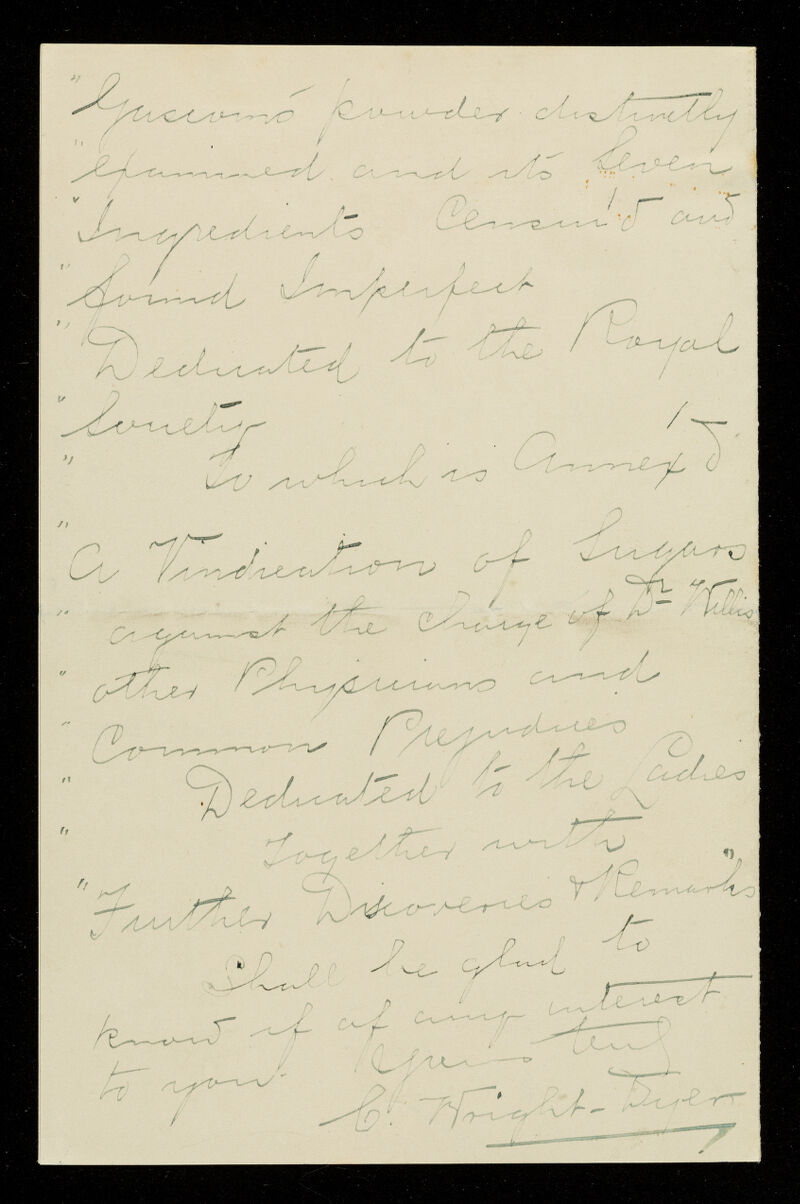 " Gascoins powder distinctly
" examined and its Seven
" Ingredients Censur'd and
" found Imperfect
" Dedicated to the Royal
" Society
" To which is Annex'd
"
A Vindication of Sugars
" against the Charge of Dr Willis
" other Physicians and
" Common Prejudices
" Dedicated to the Ladies
" Together with
" Further Discoveries & Remarks "
Shall be glad to
know if of any interest
to you. Yours truly
C. Wright-Dyer